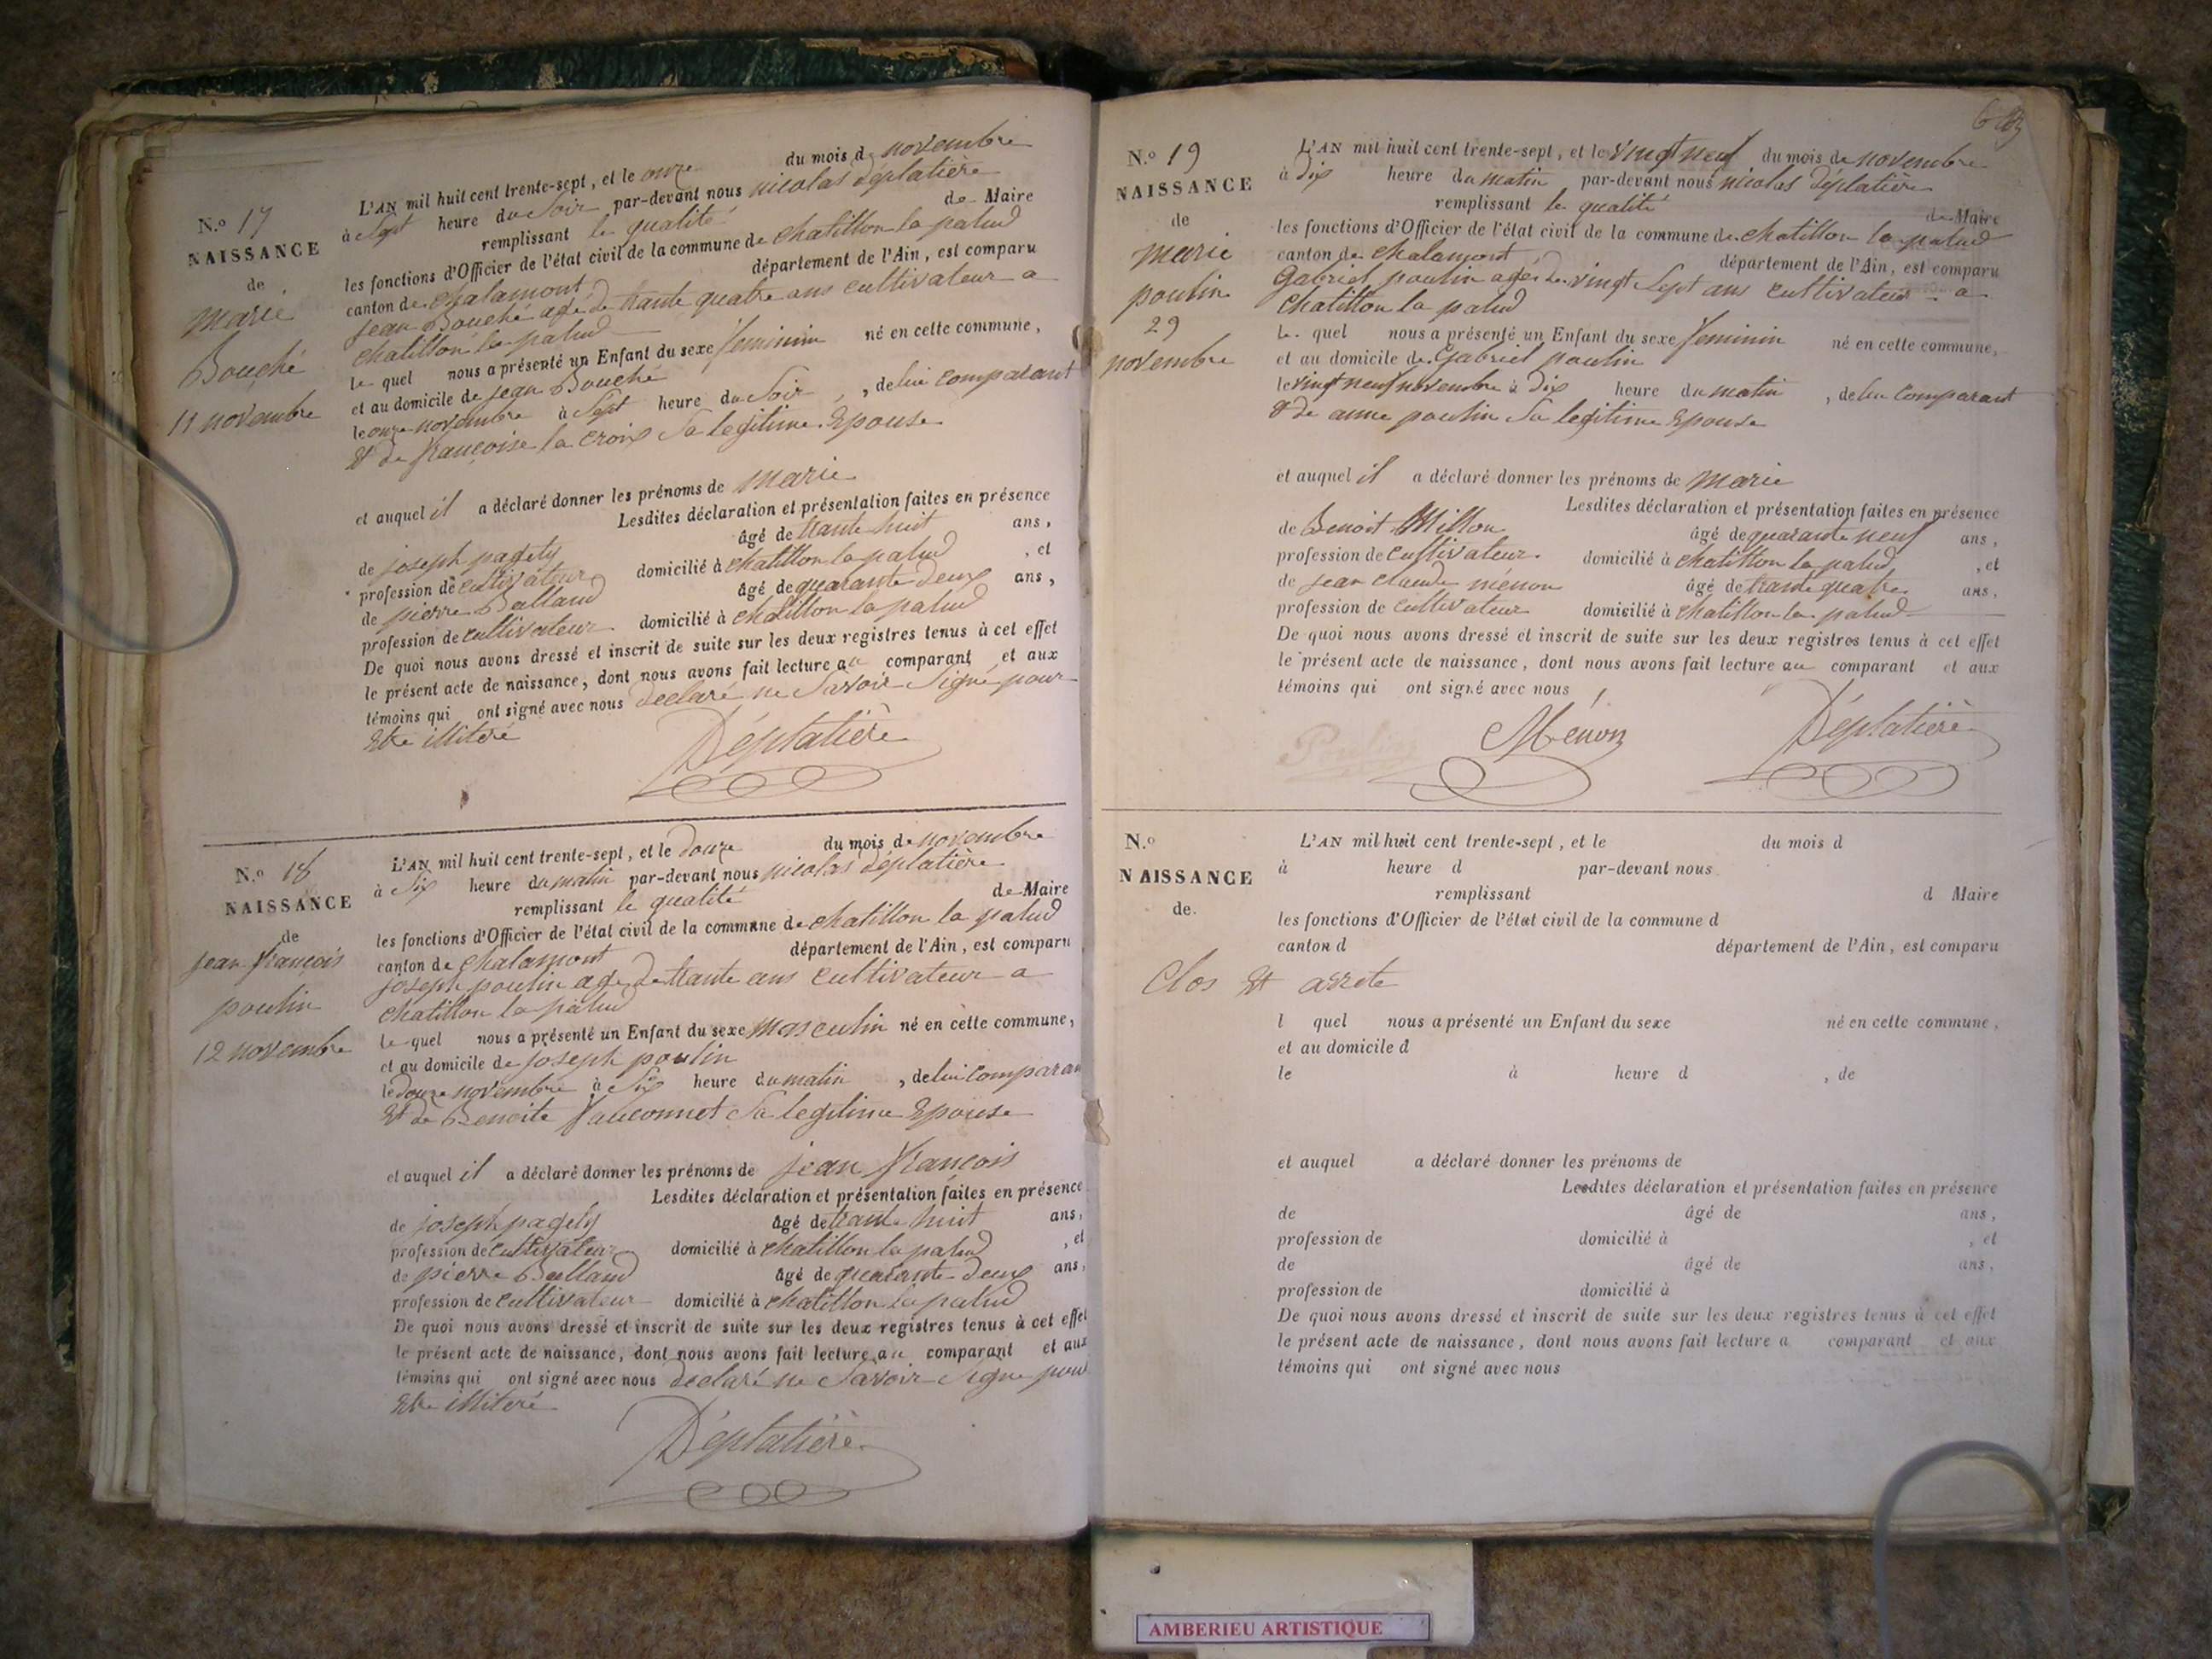 N.º 17
NAISSANCE
de
marie
Bouché
11 novembre
L'AN mil huit cent trente-sept, et le onze du mois de novembre
à Sept heure du Soir par-devant nous nicolas Déplatière
remplissant le qualité de Maire
les fonctions d'Officier de l'état civil de la commune de chatillon la palud
canton de chalamont département de l'Ain, est comparu
jean Bouché agé de trante quatre ans cultivateur a
chatillon la palud
le quel nous a présenté un Enfant du sexe feminin né en cette commune,
et au domicile de jean Bouché
le onze novembre à Sept heure du Soir, de lui comparant
Et de françoise la croix Sa legitime Epouse
et auquel il a déclaré donner les prénoms de marie
Lesdites déclaration et présentation faites en présence
de joseph pagety âgé de trante huit ans,
profession de cultivateur domicilié à chatillon la palud, et
de pierre Balland âgé de quarante Deux ans,
profession de cultivateur domicilié à chatillon la palud
De quoi nous avons dressé et inscrit de suite sur les deux registres tenus à cet effet
le présent acte de naissance, dont nous avons fait lecture au comparant et aux
témoins qui ont signé avec nous declaré ne Savoir Signé pour
Etre illiteré
Déplatière
N.º 18
NAISSANCE
de
jean françois
poulin
12 novembre
L'AN mil huit cent trente-sept, et le douze du mois de novembre
à Six heure du matin par-devant nous nicolas Déplatière
remplissant le qualité de Maire
les fonctions d'Officier de l'état civil de la commune de chatillon la palud
canton de chalamont département de l'Ain, est comparu
joseph poulin age de trante ans cultivateur a
chatillon la palud
le quel nous a présenté un Enfant du sexe masculin né en cette commune,
et au domicile de joseph poulin
le douze novembre à Six heure du matin, de lui comparan
Et de Benoite fauconnet Sa legitime Epouse
et auquel il a déclaré donner les prénoms de jean françois
Lesdites déclaration et présentation faites en présence
de joseph pagety âgé de trante huit ans,
profession de cultivateur domicilié à chatillon la palud, et
de pierre Balland âgé de quarante Deux ans,
profession de cultivateur domicilié à chatillon la palud
De quoi nous avons dressé et inscrit de suite sur les deux registres tenus à cet effet
le présent acte de naissance, dont nous avons fait lecture au comparant et aux
témoins qui ont signé avec nous declaré ne Savoir Signe pour
Etre illiteré
Déplatière
N.º 19
NAISSANCE
de
marie
poulin
29
novembre
L'AN mil huit cent trente-sept, et le vingt neuf du mois de novembre
à dix heure du matin par-devant nous nicolas Déplatière
remplissant le qualité de Maire
les fonctions d'Officier de l'état civil de la commune de chatillon la palud
canton de chalamont département de l'Ain, est comparu
Gabriel poulin agé de vingt Sept ans cultivateur a
chatillon la palud
le quel nous a présenté un Enfant du sexe feminin né en cette commune,
et au domicile de Gabriel poulin
le vingt neuf novembre à dix heure du matin, de lui comparant
& de anne poulin Sa legitime Epouse
et auquel il a déclaré donner les prénoms de marie
Lesdites déclaration et présentation faites en présence
de Benoit Millon âgé de quarante neuf ans,
profession de cultivateur domicilié à chatillon la palud, et
de jean claude ménon âgé de trante quatre ans,
profession de cultivateur domicilié à chatillon la palud
De quoi nous avons dressé et inscrit de suite sur les deux registres tenus à cet effet
le présent acte de naissance, dont nous avons fait lecture au comparant et aux
témoins qui ont signé avec nous
Poulin Ménon Déplatière
N.º
NAISSANCE
de
L'AN mil huit cent trente-sept, et le du mois d
à heure d par-devant nous
remplissant d Maire
les fonctions d'Officier de l'état civil de la commune d
canton d département de l'Ain, est comparu
Clos Et arrete
l quel nous a présenté un Enfant du sexe né en cette commune,
et au domicile d
le à heure d, de
et auquel a déclaré donner les prénoms de
Lesdites déclaration et présentation faites en présence
de âgé de ans,
profession de domicilié à, et
de âgé de ans,
profession de domicilié à
De quoi nous avons dressé et inscrit de suite sur les deux registres tenus à cet effet
le présent acte de naissance, dont nous avons fait lecture a comparant et aux
témoins qui ont signé avec nous
AMBERIEU ARTISTIQUE